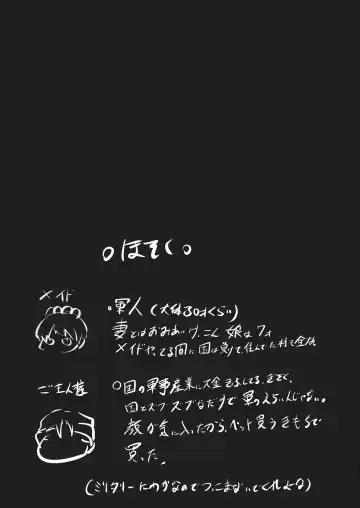 ○ほそく○
メイド
○軍人(大体30才くらい)
妻とはおさななじけっこん 娘は
メイドやってる間に国は負けて住んでた村も全
ご主人様
○国の軍事産業に大金
国とズブズブなだけで軍のえらい人じゃない。
顔が気に入ったから、ペット買うきもちで
買った。
(ミリタリーにわかなのでつっこまないでくれよな)